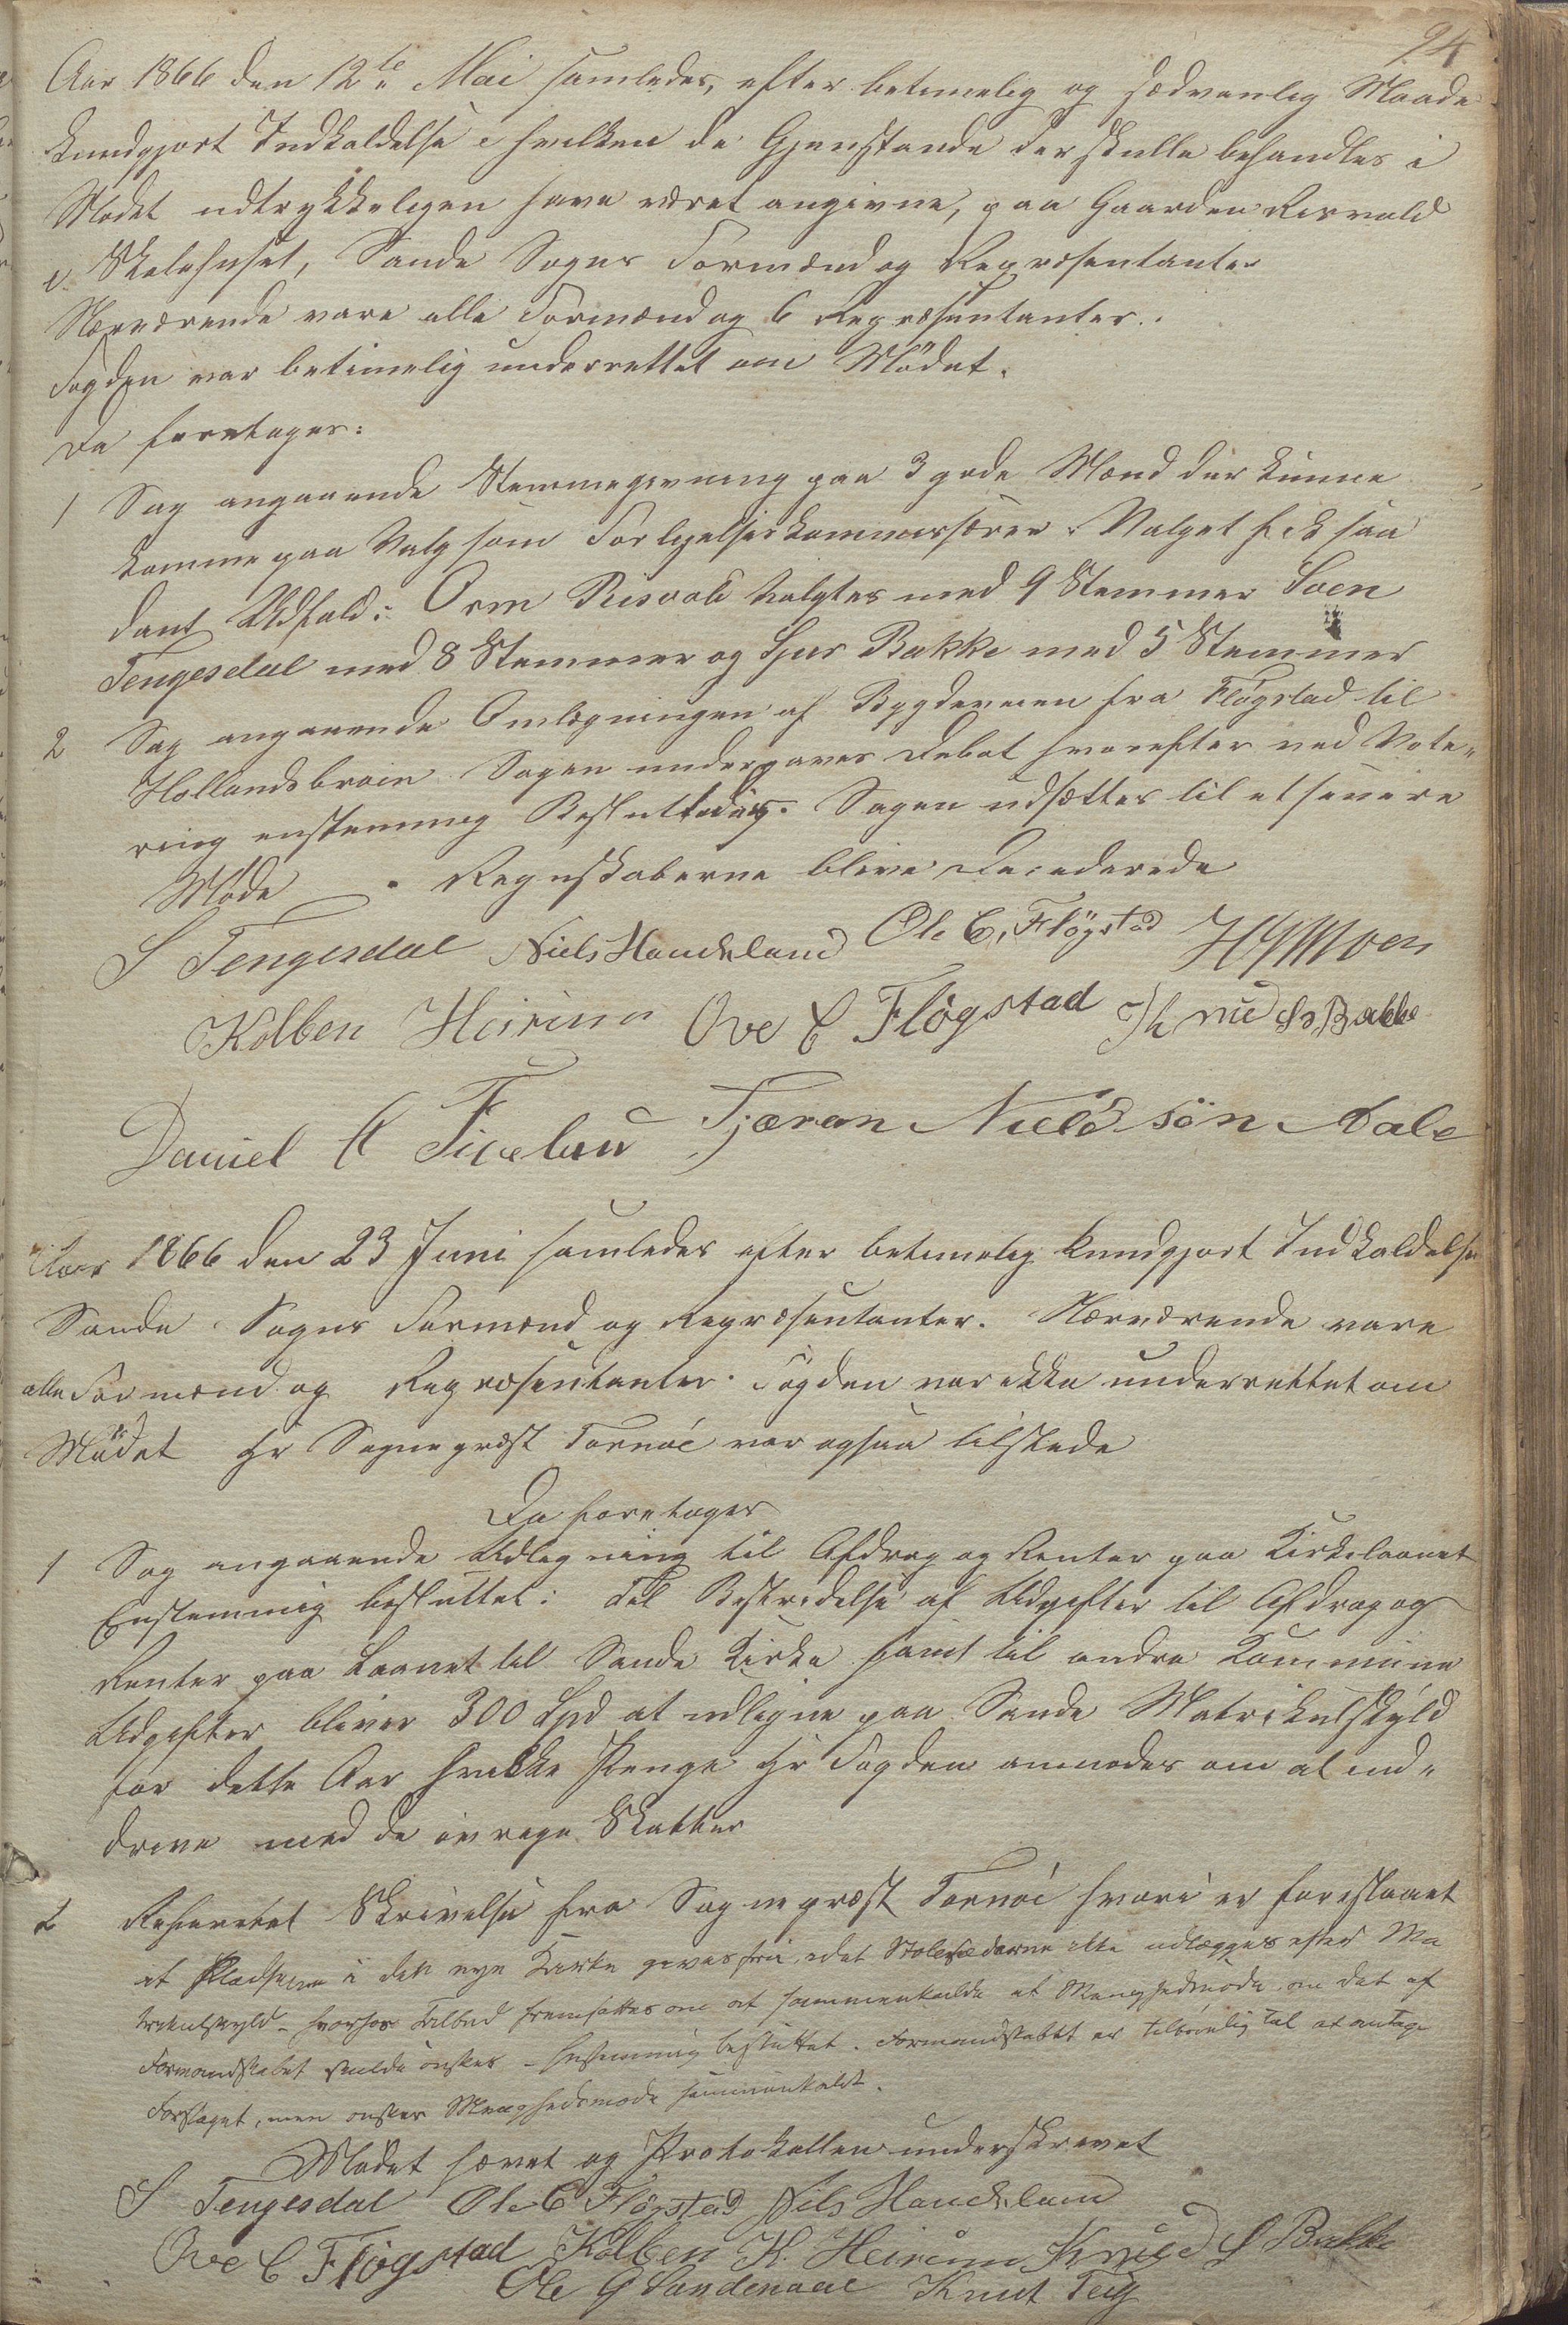 94
Aar 1866 den 12te Mai samledes, efter betimelig og sædvanlig Maade
kundgjort Indkaldelse i hvilken de Gjenstande der skulle behandles i
Mødet udtrykkeligen have været angivne, paa Gaarden Risvold
i Skolehuset, Sande Sogns Formænd og Repræsentanter
Nærværende vare alle Formænd og 6 Repræsentanter.
Fogden var betimelig underrettet om Mödet.
Da foretoges:
1 Sag angaaende Stemmegivning paa 3 gode Mænd der kunne
komme paa Valg som Forligelseskommissærer. Valget fik saa
dant Udfald: Orm Risvold valgtes med 9 Stemmer Soen
Tengesdal med 8 Stemmer og Sjur Bakke med 5 Stemmer
2 Sag angaaende Omlægningen af Bygdeveien fra Fløgstad til
Hollandsbroen. Sagen undergaves Debat hvorefter ved Vote„
ring enstemmig Besluttedes. Sagen udsættes til et senere
Møde. Regnskaberne bleve Deciderede
S Tengesdal Niels Handeland Ole C. Flögstad H Moen
Kolben Heirim Ove C Fløgstad Knud S. Bakke
Daniel A Tjæran Nielssön Dale
Aar 1866 den 23 Juni samledes efter betimelig kundgjort Indkaldelse
Sande Sogns Formænd og Repræsentanter. Nærværende vare
alle Formænd og Repræsentanter. Fogden var ikke underrettet om
Mødet Hr Sognepræst Tornöe var ogsaa tilstede
Da foretoges
1 Sag angaaende Udligning til Afdrag og Renter paa Kirkelaanet
Enstemmig besluttet: Til Bestridelse af Udgifter til Afdrag og
Renter paa Laanet til Sande Kirke samt til andre Kommune
Udgifter bliver 300 Spd at udligne paa Sande Matrikulskyld
for dette Aar hvilke Penge Hr Fogden anmodes om at ind„
drive med de øvrige Skatter
2 Refereret Skrivelse fra Sognepræst Tornöe hvori er foreslaaet
at Pladsene i den nye Kirke gives fri, idet Stolesæderne ikke udlægges efter Ma
trikulskyld – hvorhos Tilbud fremsattes om at sammenkalde et Menighedsmøde om det af
Formandskabet skulde ønskes – Enstemmig besluttet. Formandskabet er tilbøielig til at antage
Forslaget, men ønsker Menighedsmøde sammenkaldt.
Mødet hævet og Protokollen underskrevet
S Tengesdal Ole C Flögstad Nils Handeland
Ove C Fløgstad Kolben K. Heirim Knud S Bakke
Ole G Sandenaae Knut Teig